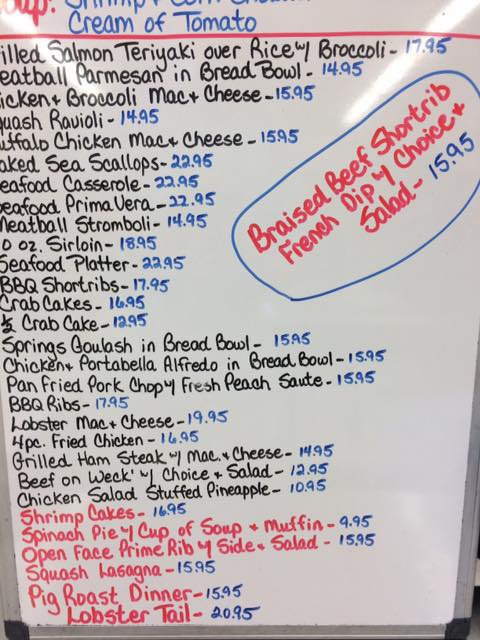 Soup: Shrimp & Corn Chowder
Cream of Tomato
illed Salmon Teriyaki over Rice w/ Broccoli - 17.95
eatball Parmesan in Bread Bowl - 14.95
icken & Broccoli Mac & Cheese - 15.95
quash Ravioli - 14.95
uffalo Chicken Mac & Cheese - 15.95
aked Sea Scallops - 22.95
eafood Casserole - 22.95
Seafood PrimaVera - 22.95
Meatball Stromboli - 14.95
0 oz. Sirloin - 18.95
Seafood Platter - 22.95
BBQ Shortribs - 17.95
Crab Cakes - 16.95
½ Crab Cake - 12.95
Springs Goulash in Bread Bowl - 15.95
Chicken & Portabella Alfredo in Bread Bowl - 15.95
Pan Fried Pork Chop w/ Fresh Peach Saute - 15.95
BBQ Ribs - 17.95
Lobster Mac & Cheese - 19.95
4pc. Fried Chicken - 16.95
Grilled Ham Steak w/ Mac. & Cheese - 14.95
Beef on Weck' w/ Choice & Salad - 12.95
Chicken Salad Stuffed Pineapple - 10.95
Shrimp Cakes - 16.95
Spinach Pie w/ Cup of Soup & Muffin - 9.95
Open Face Prime Rib w/ Side & Salad - 15.95
Squash Lasagna - 15.95
Pig Roast Dinner - 15.95
Lobster Tail - 20.95
Braised Beef Shortrib
French Dip w/ Choice &
Salad - 15.95